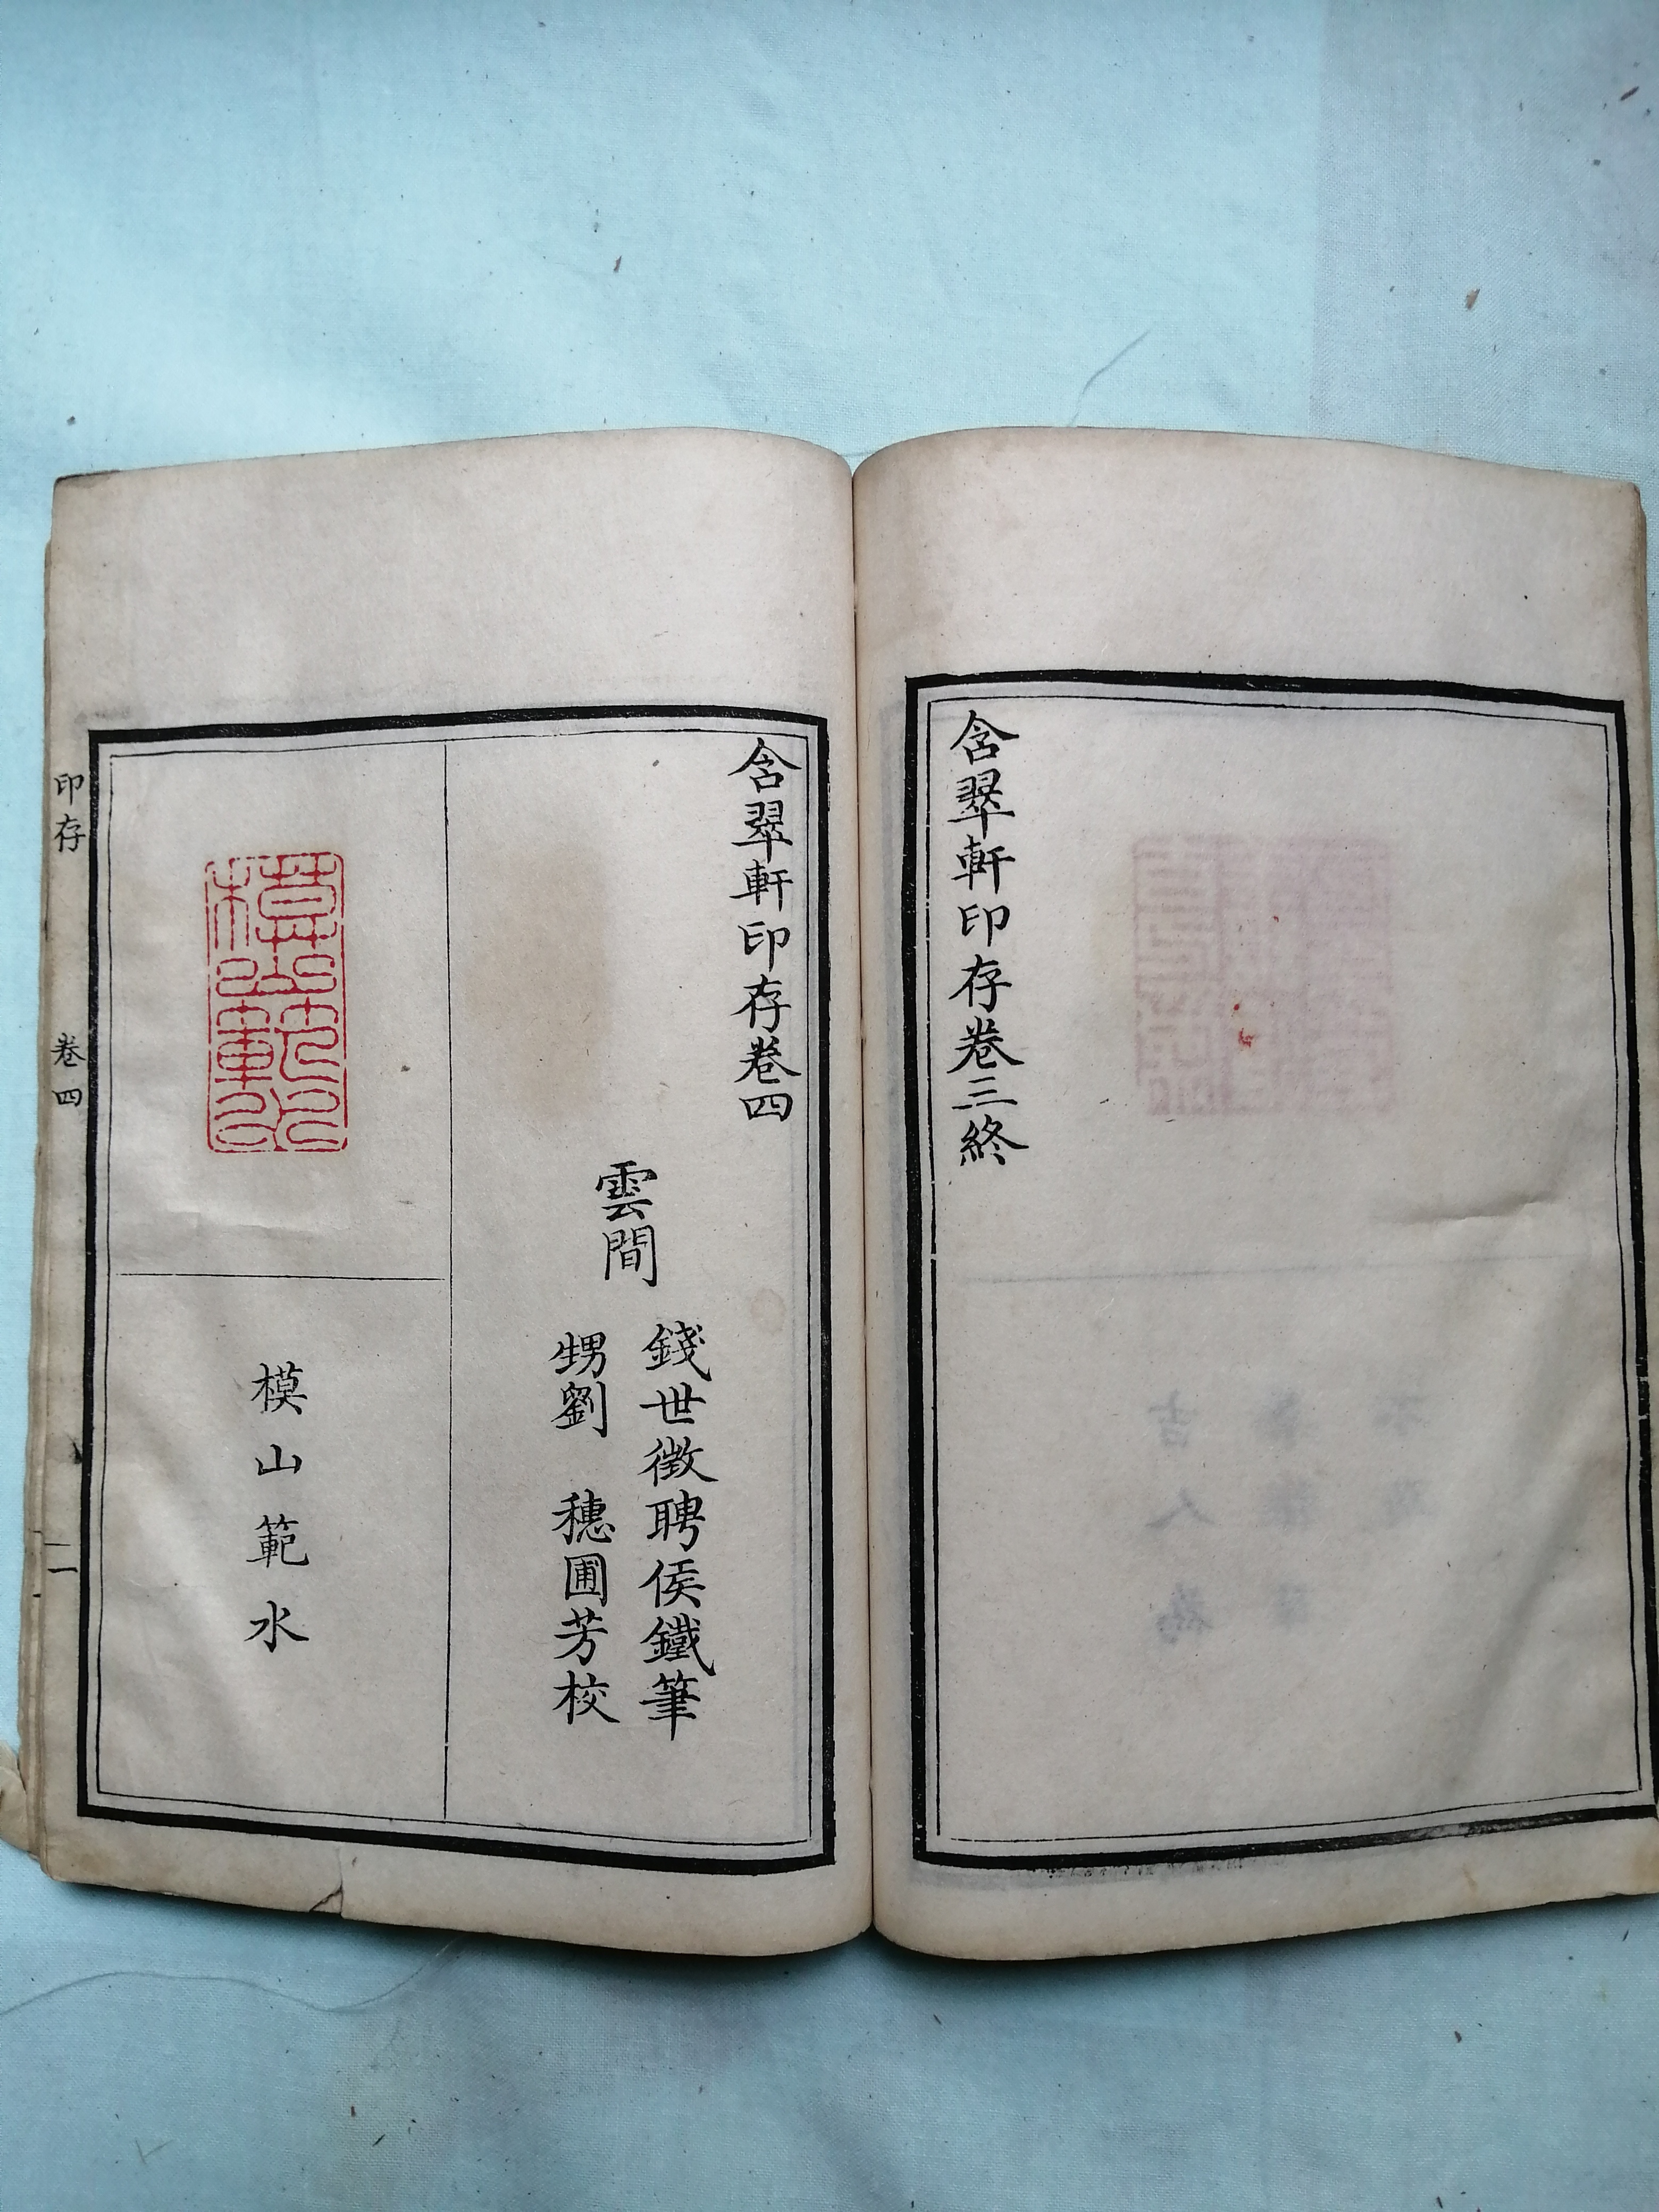 含翠軒印存卷三終
含翠軒印存卷四
雲間
錢世徵聘侯鐵筆
甥劉 穗圃芳校
模山範水
模山範水
印存 卷四 一